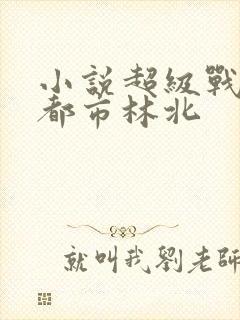 小説超級戰
都市林北
就叫我劉老師